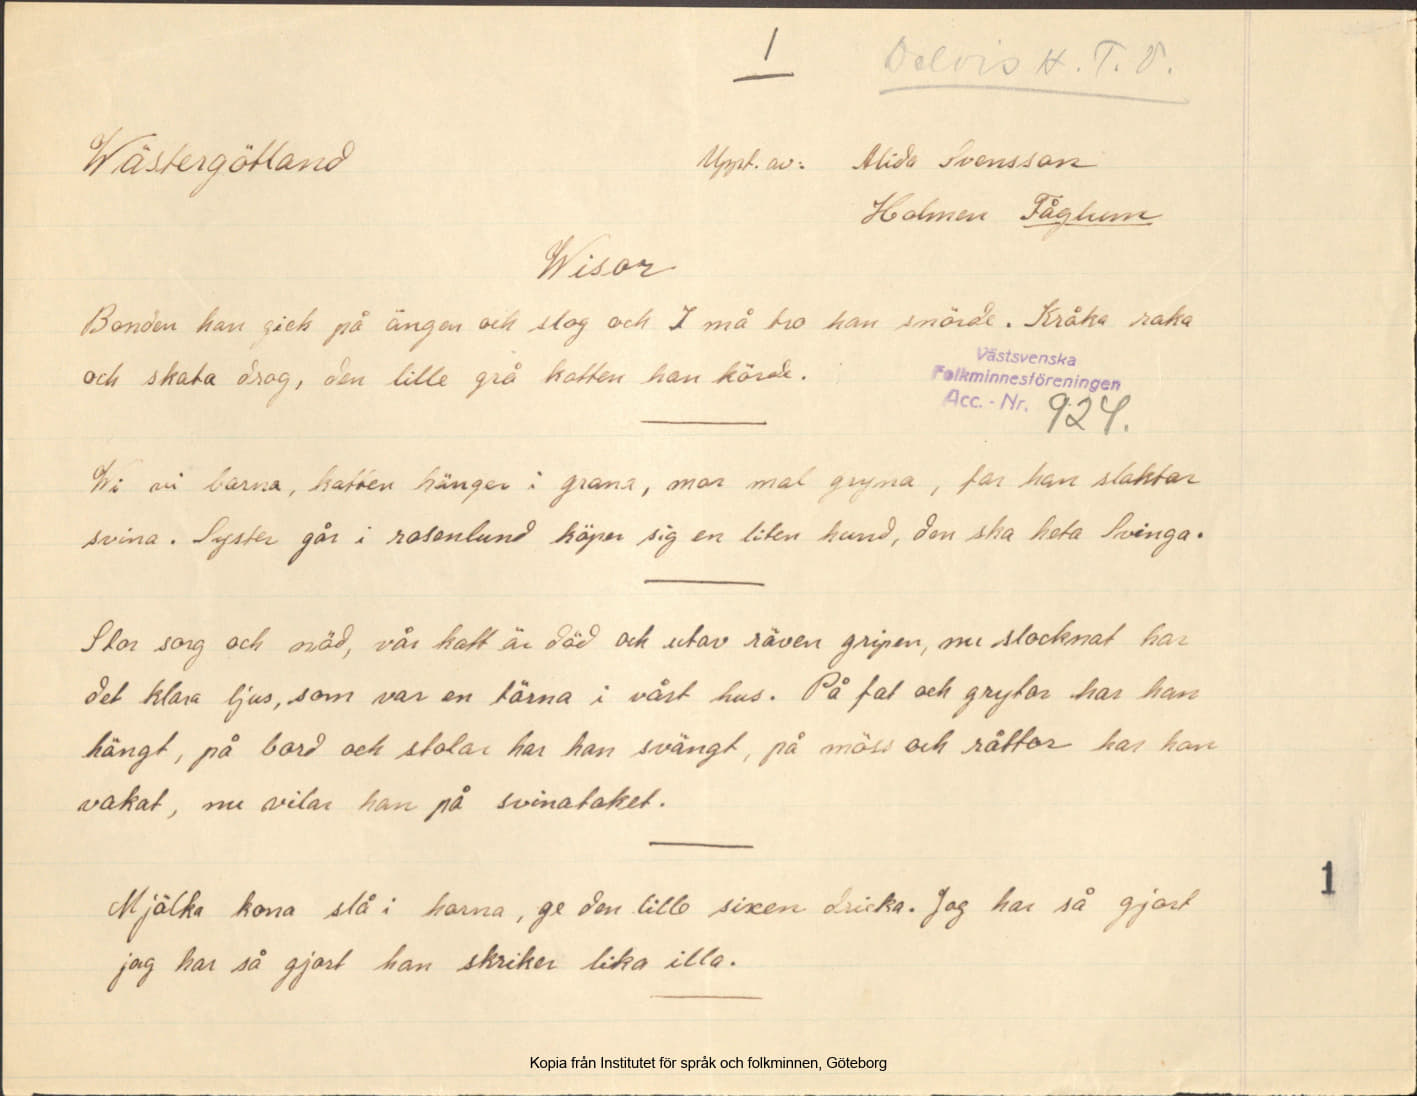 1
Delvis H. T. V.
Wästergötland
Uppt. av: Alida Svensson
Holmen Fåglum
Wisor
Bonden han gick på ängen och slog och I må tro han snörde. Kråka raka
och skata drog, den lille grå katten han körde.
Västsvenska
Folkminnesföreningen
Acc. - Nr. 924.
Wi vi barna, katten hänger i grana, mor mal gryna, far han slaktar
svina. Syster går i rosenlund köper sig en liten hund, den ska heta Svinga.
Stor sorg och nöd, vår katt är död och utav räven gripen, nu slocknat har
det klara ljus, som var en tärna i vårt hus. På fat och grytor har han
hängt, på bord och stolar har han svängt, på möss och råttor har han
vakat, nu vilar han på svinataket.
1
Mjölka kona slå i horna, ge den lille sixen dricka. Jag har så gjort
jag har så gjort han skriker lika illa.
Kopia från Institutet för språk och folkminnen, Göteborg